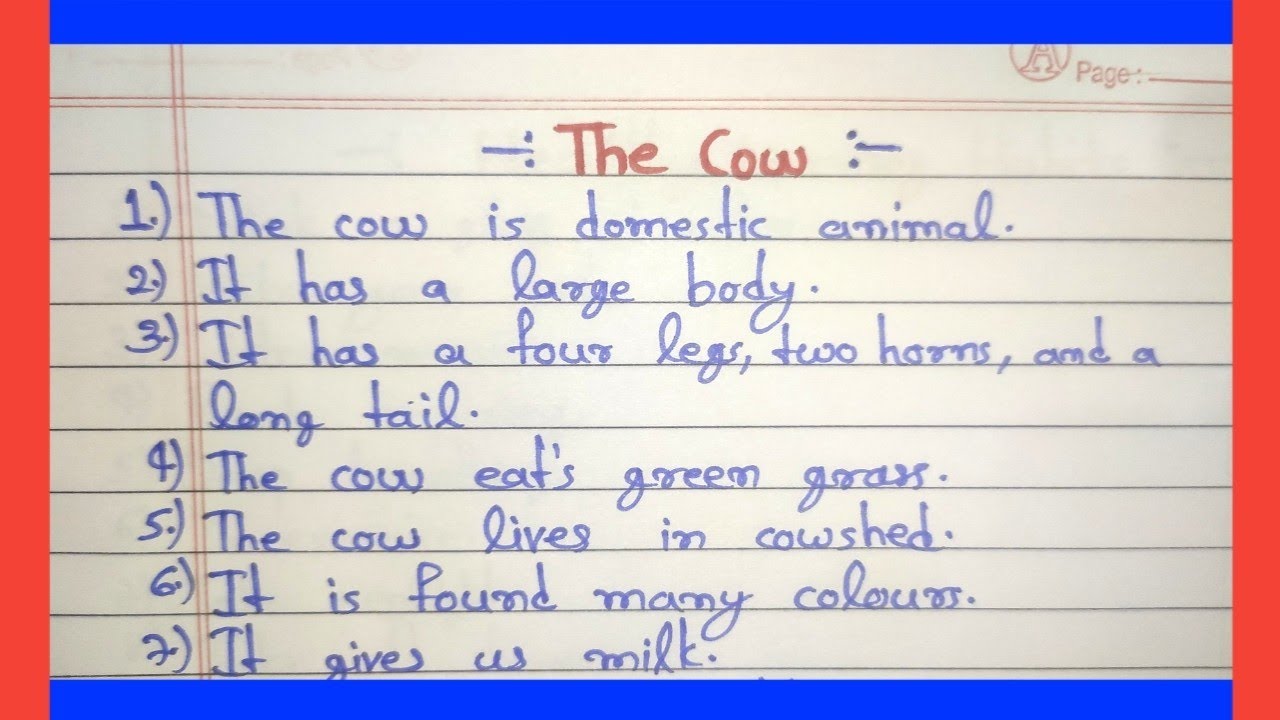 A Page:
-: The Cow :-
1.) The cow is domestic animal.
2.) It has a large body.
3.) It has a four legs, two horns, and a
long tail.
4) The cow eat's green grass.
5.) The cow lives in cowshed.
6.) It is found many colours.
7.) It gives us milk.